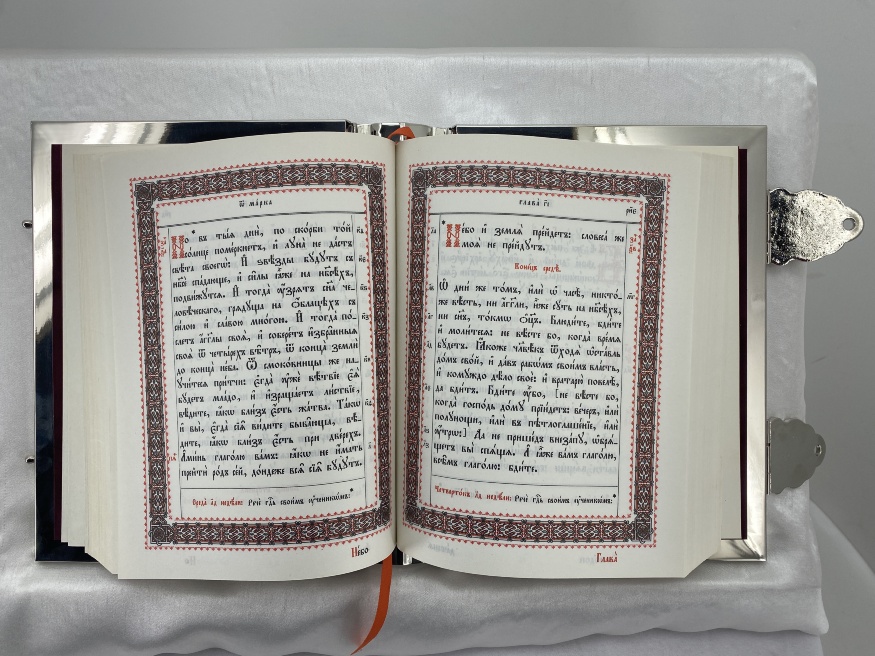 Ѿ ма́рка
рп҃е
Но въ ты́ѧ дни̑, по ско́рби то́й
со́лнце поме́ркнетъ, и҆ лꙋна̀ не да́стъ
свѣ́та своегѡ̀: И҆ ѕвѣ́зды бꙋ́дꙋтъ съ
нб҃сѐ спа́дающе, и҆ си̑лы ꙗ҆̀же на нб҃сѣ́хъ,
подви́жꙋтсѧ. И҆ тогда̀ ᲂу҆́зрѧтъ сн҃а че-
ловѣ́ческаго, грѧдꙋ́ща на ѻ҆́блацѣхъ съ
си́лою и҆ сла́вою мно́гою. И҆ тогда̀ по́-
слетъ а҆́гг҃лы своѧ̑, и҆ собере́тъ и҆збра̑нныѧ
своѧ̑ ѿ четы́рехъ вѣ̑тръ, ѿ конца̀ землѝ
до конца̀ не́ба. Ѿ смоко́вницы же на-
ᲂу҆чи́тесѧ при́тчи: є҆гда̀ ᲂу҆жѐ вѣ́твїе є҆ѧ̀
бꙋ́детъ мла́до, и҆ и҆зраща́етъ ли́ствїе,
вѣ́дите, ꙗ҆́кѡ бли́з̾ є҆́сть жа́тва. Та́кѡ
и҆ вы̀, є҆гда̀ сїѧ̑ ви́дите быва̑юща, вѣ́-
дите, ꙗ҆́кѡ бли́з̾ є҆́сть при две́рехъ.
А҆ми́нь глаго́лю ва́мъ: ꙗ҆́кѡ не и҆́мать
прейтѝ ро́дъ се́й, до́ндеже всѧ̑ сїѧ̑ бꙋ́дꙋтъ.
Среда̀ ла недѣ́ли: Речѐ гд҇ь свои̑мъ ᲂу҆ченикѡ́мъ:
Не́бо
глава̀ гі
рп҃е
Не́бо и҆ землѧ̀ пре́йдетъ: словеса́ же
моѧ̑ не пре́йдꙋтъ.
Коне́цъ средѣ̀.
Ѡ҆ днѝ же то́мъ, и҆лѝ ѡ҆ часѣ̀, никто́-
же вѣ́сть, ни а҆́гг҃ли, и҆̀же сꙋ́ть на нб҃сѣ́хъ,
ни сн҃ъ, то́кмѡ ѻ҆ц҃ъ. Блюди́те, бди́те
и҆ моли́тесѧ: не вѣ́сте бо, когда̀ вре́мѧ
бꙋ́детъ. Ꙗ҆́коже чл҃вѣ́къ ѿходѧ̀ ѡ҆ста́вль
до́мъ сво́й, и҆ да́въ рабѡ́мъ свои̑мъ вла́сть,
и҆ комꙋ́ждо дѣ́ло своѐ: и҆ вратарю̀ повелѣ̀,
да бди́тъ. Бди́те ᲂу҆̀бо, [не вѣ́сте бо,
когда̀ госпо́дь до́мꙋ прїи́детъ: ве́черъ, и҆лѝ
полꙋ́нощи, и҆лѝ въ пѣтлоглаше́нїе, и҆лѝ
ᲂу҆́трѡ:] Да не прише́дъ внеза́пꙋ, ѡ҆брѧ́-
щетъ вы̀ спѧ́щѧ. А҆ ꙗ҆̀же ва́мъ глаго́лю,
всѣ̑мъ глаго́лю: бди́те.
Четверто́къ ла недѣ́ли: Речѐ гд҇ь свои̑мъ ᲂу҆ченикѡ́мъ:
Глава̀